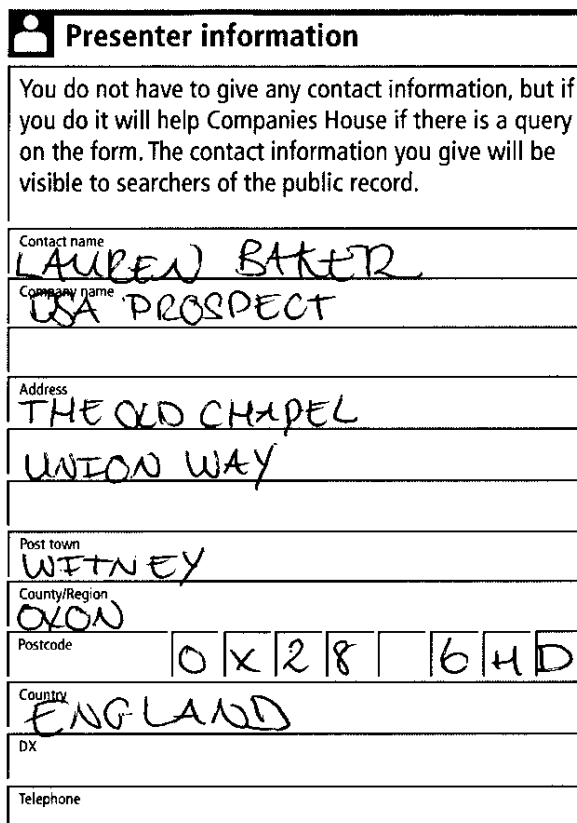 Presenter information
You do not have to give any contact information, but if
you do it will help Companies House if there is a query
on the form. The contact information you give will be
visible to searchers of the public record.
Contact name
LAUREN BAKER
Company name
DSA PROSPECT
Address
THE OLD CHAPEL
UNION WAY
Post town
WITNEY
County/Region
OXON
Postcode
OX28 6HD
Country
ENGLAND
DX
Telephone